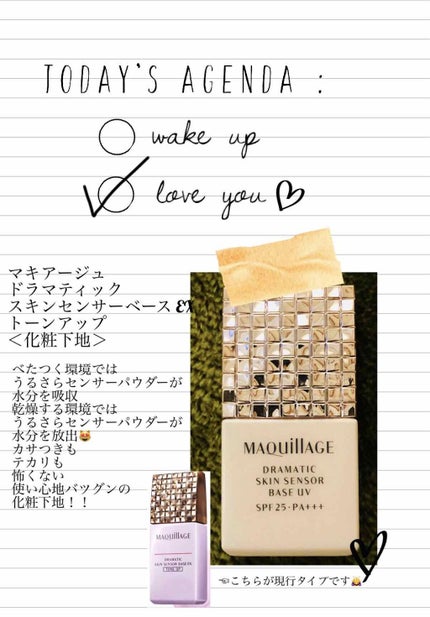 TODAY'S AGENDA :
wake up
love you
マキアージュ
ドラマティック
スキンセンサーベース EX
トーンアップ
＜化粧下地＞
べたつく環境では
うるさらセンサーパウダーが
水分を吸収
乾燥する環境では
うるさらセンサーパウダーが
水分を放出😹
カサつきも
テカリも
怖くない
使い心地バツグンの
化粧下地！！
MAQuillAGE
DRAMATIC
SKIN SENSOR
BASE UV
SPF25・PA+++
MAQuillAGE
DRAMATIC
SKIN SENSOR BASE EX
TONE UP
☜こちらが現行タイプです🙇